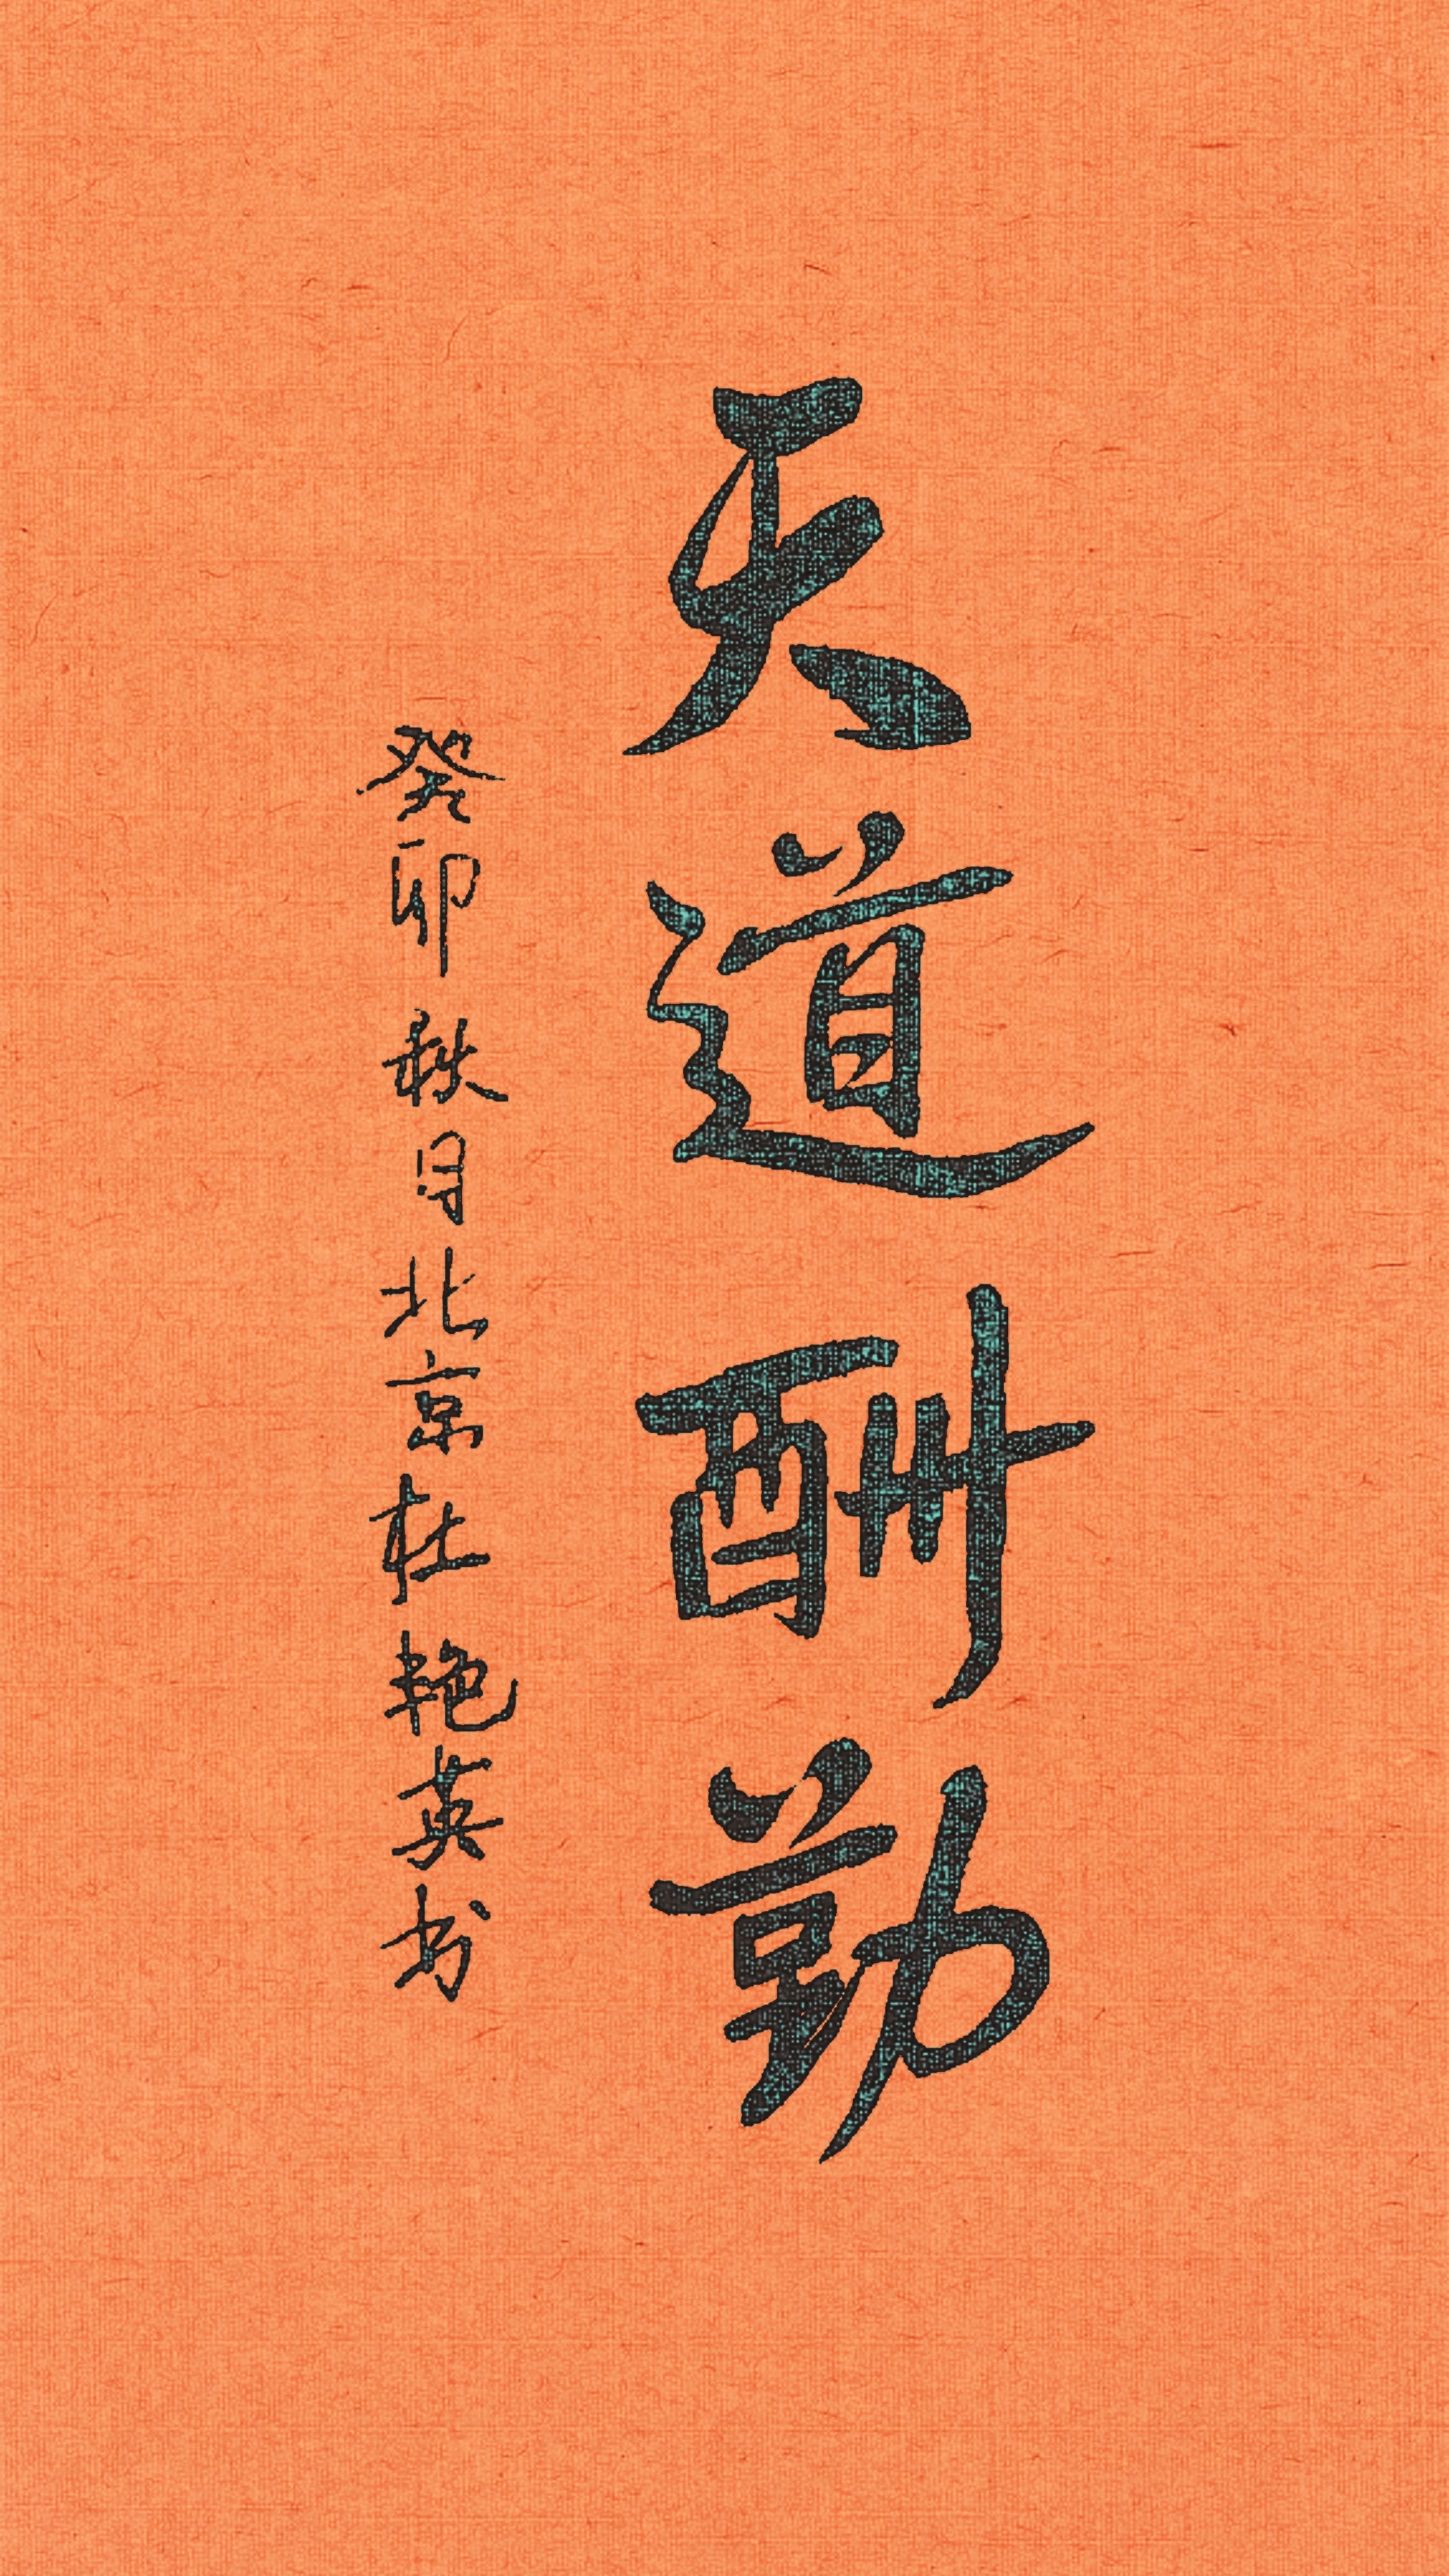 天道酬勤
癸卯秋月北京杜艳英书